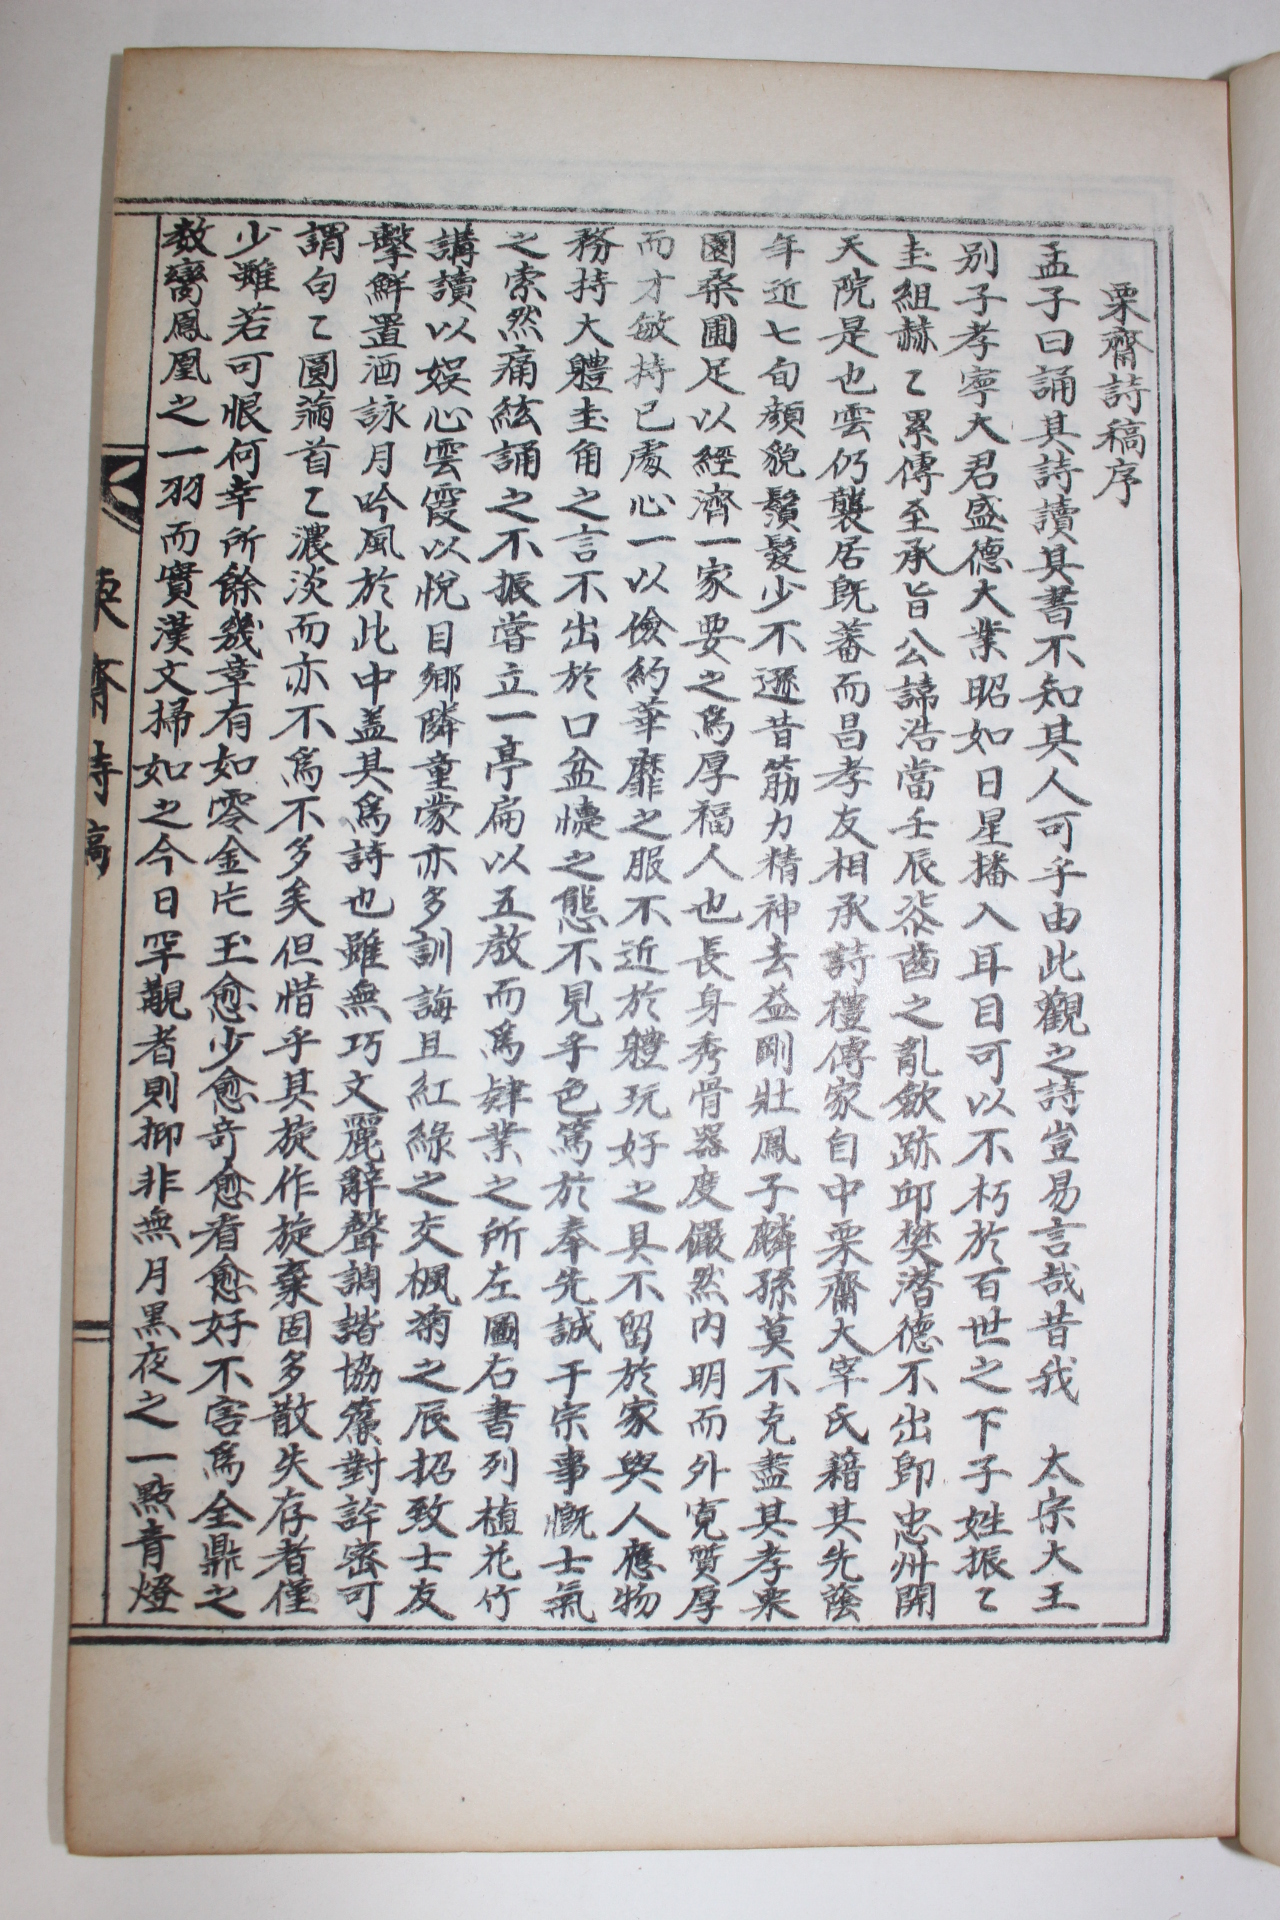 栗齋詩稿序
孟子曰誦其詩讀其書不知其人可乎由此觀之詩豈易言哉昔我　太宗大王
别子孝寧大君盛德大業昭如日星播入耳目可以不朽於百世之下子姓振〻
圭組赫〻累傳至承旨公諱浩當壬辰沴齒之亂斂跡邱樊潛德不出卽忠州開
天院是也雲仍襲居旣蕃而昌孝友相承詩禮傳家自中栗齋大宰氏藉其先蔭
年近七旬顏貌鬚髮少不遜昔筋力精神去益剛壯鳳子麟孫莫不克盡其孝栗
園桑圃足以經濟一家要之爲厚福人也長身秀骨器度儼然内明而外寬質厚
而才敏持已處心一以儉約華靡之服不近於軆玩好之具不留於家與人應物
務持大軆圭角之言不出於口忿懥之態不見乎色篤於奉先誠于宗事慨士氣
之索然痛絃誦之不振嘗立一亭扁以五教而爲肄業之所左圖右書列植花竹
講讀以娛心雲霞以悅目鄉隣童蒙亦多訓誨且紅綠之交楓菊之辰招致士友
擊鮮置酒詠月吟風於此中盖其爲詩也雖無巧文麗辭聲調諧協簾對詳密可
謂句〻圓滿首〻濃淡而亦不爲不多矣但惜乎其旋作旋棄固多散失存者僅
少雖若可恨何幸所餘幾章有如零金片玉愈少愈奇愈看愈好不害爲全鼎之
教鸞鳳凰之一羽而實漢文掃如之今日罕覯者則抑非無月黑夜之一點青燈
栗齋詩稿